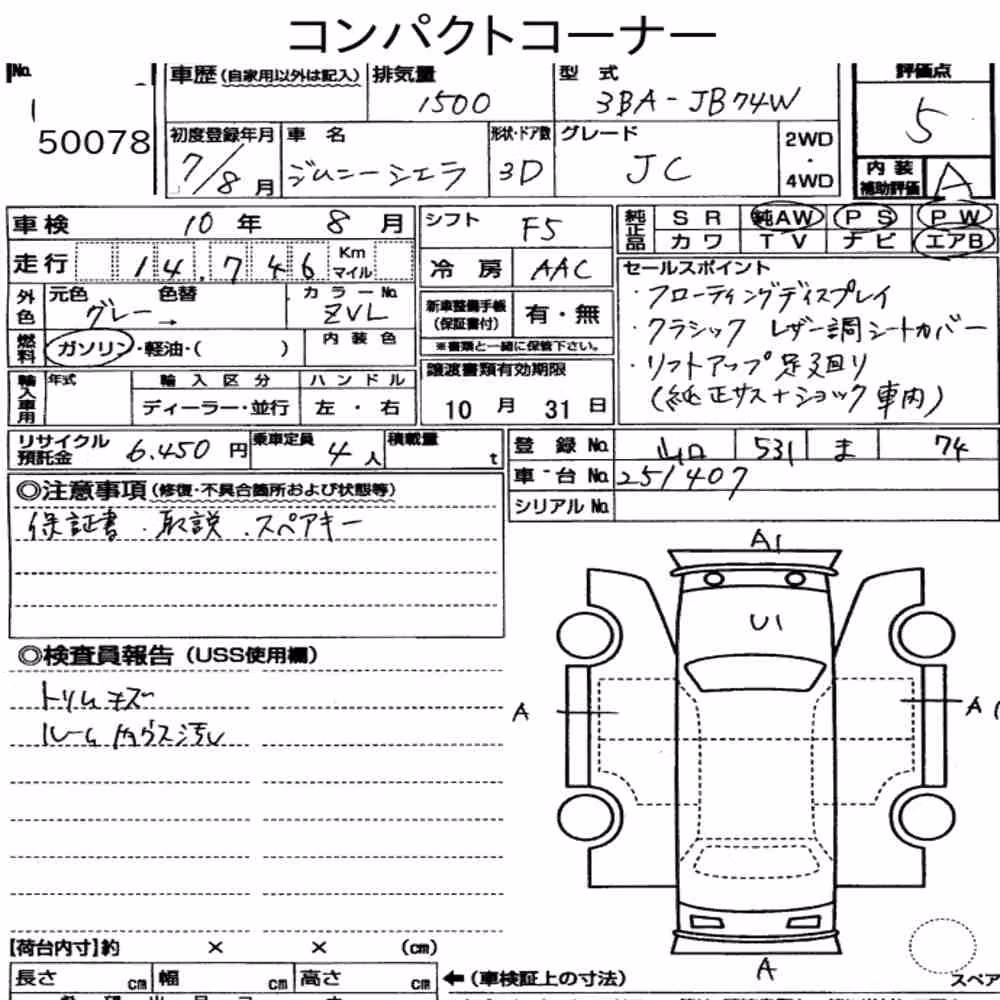 コンパクトコーナー
No.
1
50078
車歴(自家用以外は記入) 排気量 1500
型式 3BA-JB74W
評価点 5
内装補助評価 A
初度登録年月 7/8月
車名 ジムニーシエラ
形状・ドア数 3D
グレード JC
2WD・4WD
車検 10年 8月
走行 14.746 Km マイル
外色 元色 グレー→ 色替 カラーNo. ZVL
燃料 ガソリン・軽油・( ) 内装色
輸入車用 年式 輸入区分 ディーラー・並行 ハンドル 左・右
シフト F5
冷房 AAC
新車整備手帳(保証書付) 有・無
※書類と一緒に保管下さい。
譲渡書類有効期限
10月31日
純正品 SR 純AW PS PW
カワ TV ナビ エアB
セールスポイント
・フローティングディスプレイ
・クラシック レザー調シートカバー
・リフトアップ足廻り
(純正サス+ショック車内)
リサイクル預託金 6.450円 乗車定員 4人 積載量 t
登録No. 山口 531 ま 74
車台No. 251407
シリアルNo.
◎注意事項(修復・不具合箇所および状態等)
保証書・取説・スペアキー
◎検査員報告(USS使用欄)
トリムキズ
ルーム内ガラス汚レ
A1
U1
A
A
A
[荷台内寸]約 × × (cm)
長さ cm 幅 cm 高さ cm ←(車検証上の寸法)
スペア